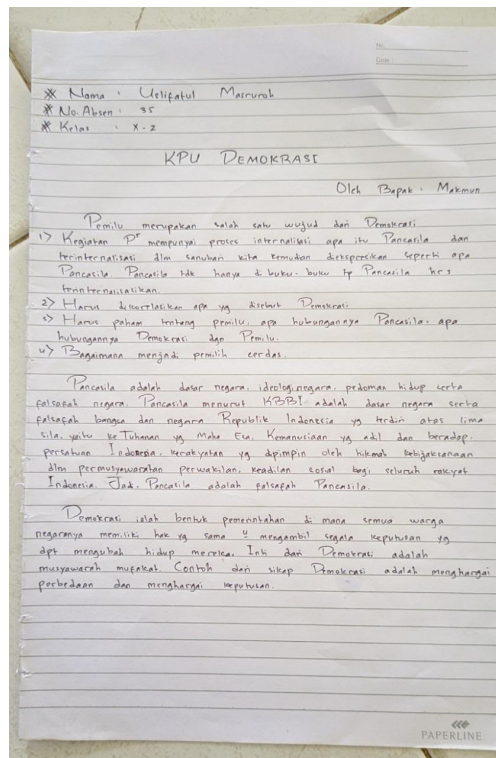 No.
Date :
* Nama : Uelifatul Masruroh
* No. Absen : 35
* Kelas : X - 2
KPU DEMOKRASI
Oleh Bapak : Makmun
Pemilu merupakan salah satu wujud dari Demokrasi
1) Kegiatan P5 mempunyai proses internalisasi apa itu Pancasila dan
terinternalisasi dlm sanubari kita kemudian diekspresikan seperti apa
Pancasila. Pancasila tdk hanya di buku-buku tp Pancasila hrs
terinternalisasikan.
2) Harus dikorelasikan apa yg disebut Demokrasi
3) Harus paham tentang pemilu, apa hubungannya Pancasila, apa
hubungannya Demokrasi dgn Pemilu.
4) Bagaimana menjadi pemilih cerdas.
Pancasila adalah dasar negara, ideologi negara, pedoman hidup serta
falsafah negara. Pancasila menurut KBBI adalah dasar negara serta
falsafah bangsa dan negara Republik Indonesia yg terdiri atas lima
sila, yaitu ke Tuhanan yg Maha Esa, Kemanusiaan yg adil dan beradap,
persatuan Indonesia, kerakyatan yg dpimpin oleh hikmah kebijaksanaan
dlm permusyawaratan perwakilan, keadilan sosial bagi seluruh rakyat
Indonesia. Jadi, Pancasila adalah falsafah Pancasila.
Demokrasi ialah bentuk pemerintahan di mana semua warga
negaranya memiliki hak yg sama u mengambil segala keputusan yg
dpt mengubah hidup mereka. Inti dari Demokrasi adalah
musyawarah mufakat. Contoh dari sikap Demokrasi adalah menghargai
perbedaan dan menghargai keputusan.
PAPERLINE